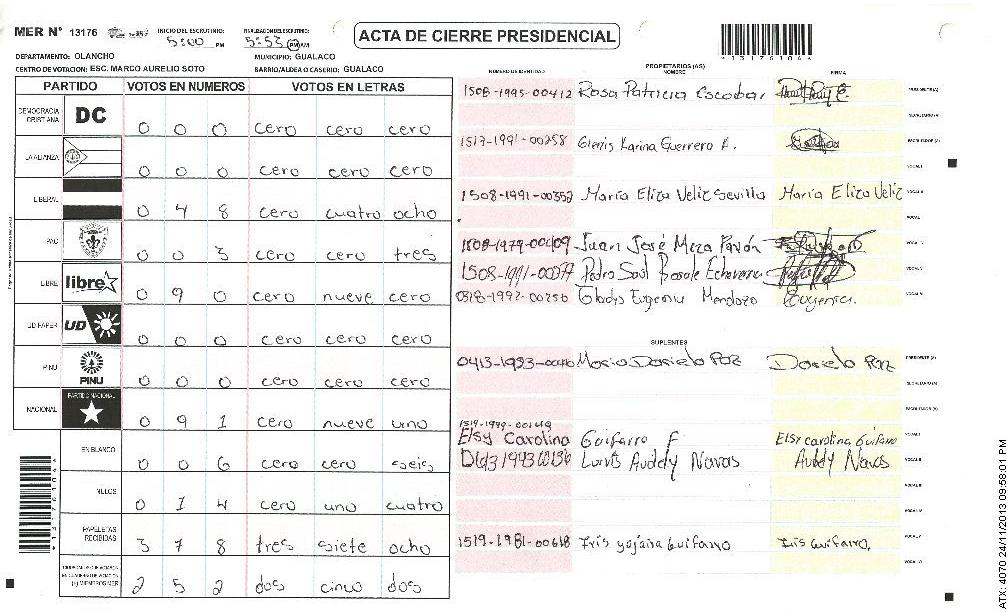 MER N° 13176
INICIO DEL ESCRUTINIO: 5:00 PM
FINALIZACION DEL ESCRUTINIO: 5:53 PM AM
ACTA DE CIERRE PRESIDENCIAL
DEPARTAMENTO: OLANCHO
MUNICIPIO: GUALACO
CENTRO DE VOTACION: ESC. MARCO AURELIO SOTO
BARRIO/ALDEA O CASERIO: GUALACO
PARTIDO VOTOS EN NUMEROS VOTOS EN LETRAS
DEMOCRACIA CRISTIANA DC 0 0 0 cero cero cero
LA ALIANZA 0 0 0 cero cero cero
LIBERAL 0 4 8 cero cuatro ocho
PAC 0 0 3 cero cero tres
LIBRE libre 0 9 0 cero nueve cero
UD FAPER UD 0 0 0 cero cero cero
PINU PINU 0 0 0 cero cero cero
NACIONAL PARTIDO NACIONAL 0 9 1 cero nueve uno
EN BLANCO 0 0 6 cero cero seis
NULOS 0 1 4 cero uno cuatro
PAPELETAS RECIBIDAS 3 7 8 tres siete ocho
2 5 2 dos cinco dos
NUMERO DE IDENTIDAD
PROPIETARIOS (AS)
NOMBRE
FIRMA
1508-1995-00412 Rosa Patricia Escobar
PRESIDENTE (A)
SECRETARIO (A)
1517-1991-00258 Glenis Karina Guerrero
ESCRUTADOR (A)
VOCAL I
1508-1991-00352 Maria Eliza Veliz Sevilla Maria Eliza Veliz
VOCAL II
1508-1979-00409 Juan José Meza Pavón
Pedro
0318-1992-00250 Gladis Eugenia Mendoza Eugenia
SUPLENTES
PRESIDENTE (A)
SECRETARIO (A)
ESCRUTADOR (A)
Elsy Carolina Guifarro F Elsy carolina Guifarro
VOCAL I
Auddy Navas Auddy Navas
VOCAL II
1519-1981-00618 Iris yojana Guifarro Iris Guifarro.
ATX: 4070 24/11/2013 09:58:01 PM